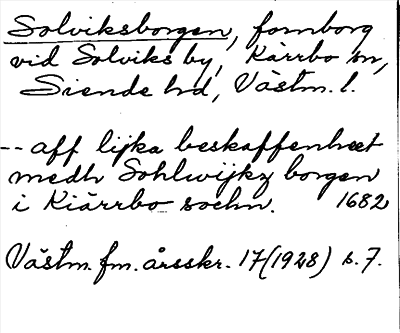 Solviksborgen, fornborg
vid Solviks by, Kärrbo sn,
Siende hd, Västm. l.
-- aff lijka beskaffenheet
medh Sohlwijkz borgen
i Kiärrbo sochn. 1682
Västm. fm. årsskr. 17 (1928) s. 7.